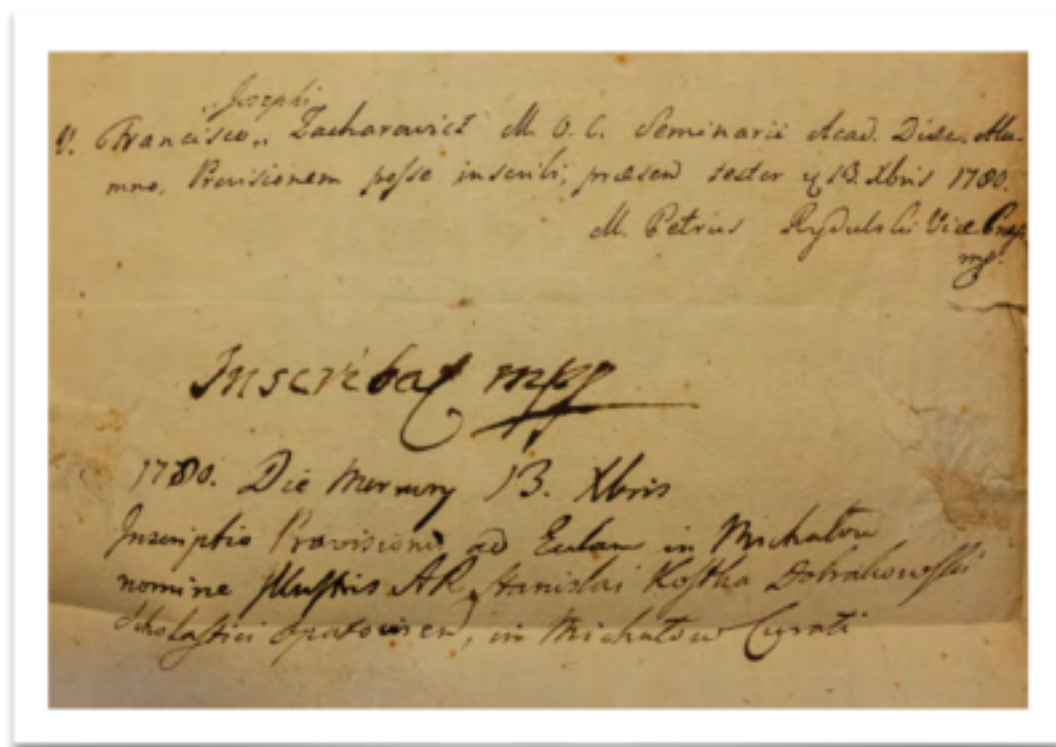 „Josephi
V. Francisco„ Zacharowicz M. O. C. Seminarii Acad. Diaec. Alu-
mno, Provisionem posse inscribi, praesen testor 13. Xbris 1780.
M. Petrus Rydulski Vice
mp.
Inscribat mpp
1780. Die Mercury 13. Xbris
Inscriptio Provisionis ad Eccłam in Michałow
nomine Illustris AR Stanislai Kostka Dobrakowski
Scholastici Opatovien, in Michałow Curati